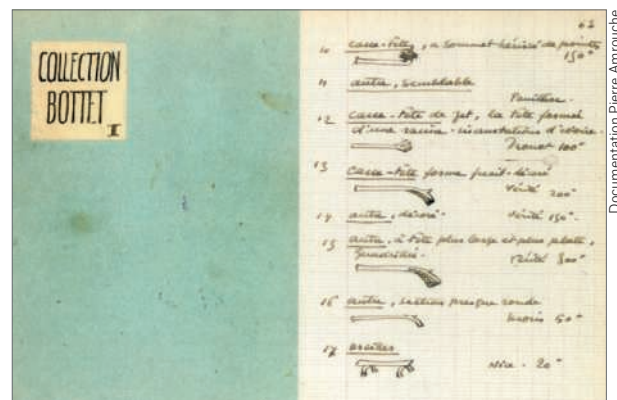 COLLECTION
BOTTET
I
62
10 casse-tête, à sommet hérissé de pointes
150
11 autre, semblable
12 casse-tête de jet, la tête formée
d'une racine - incrustations d'ivoire.
100
13 casse-tête forme
Vérité 200
14 autre, décoré. Vérité 150
15 autre, à tête plus large et plus plate,
quadrillée. Vérité
16 autre, section presque ronde
50
17
20
Documentation Pierre Amrouche